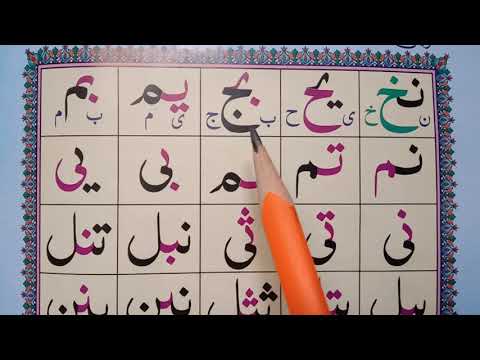 نخ یح بج یم بم
ن خ ی ح ب ج ی م ب م
نم تم بی یی
نی تی ثی نبل تنل
ثثل نین